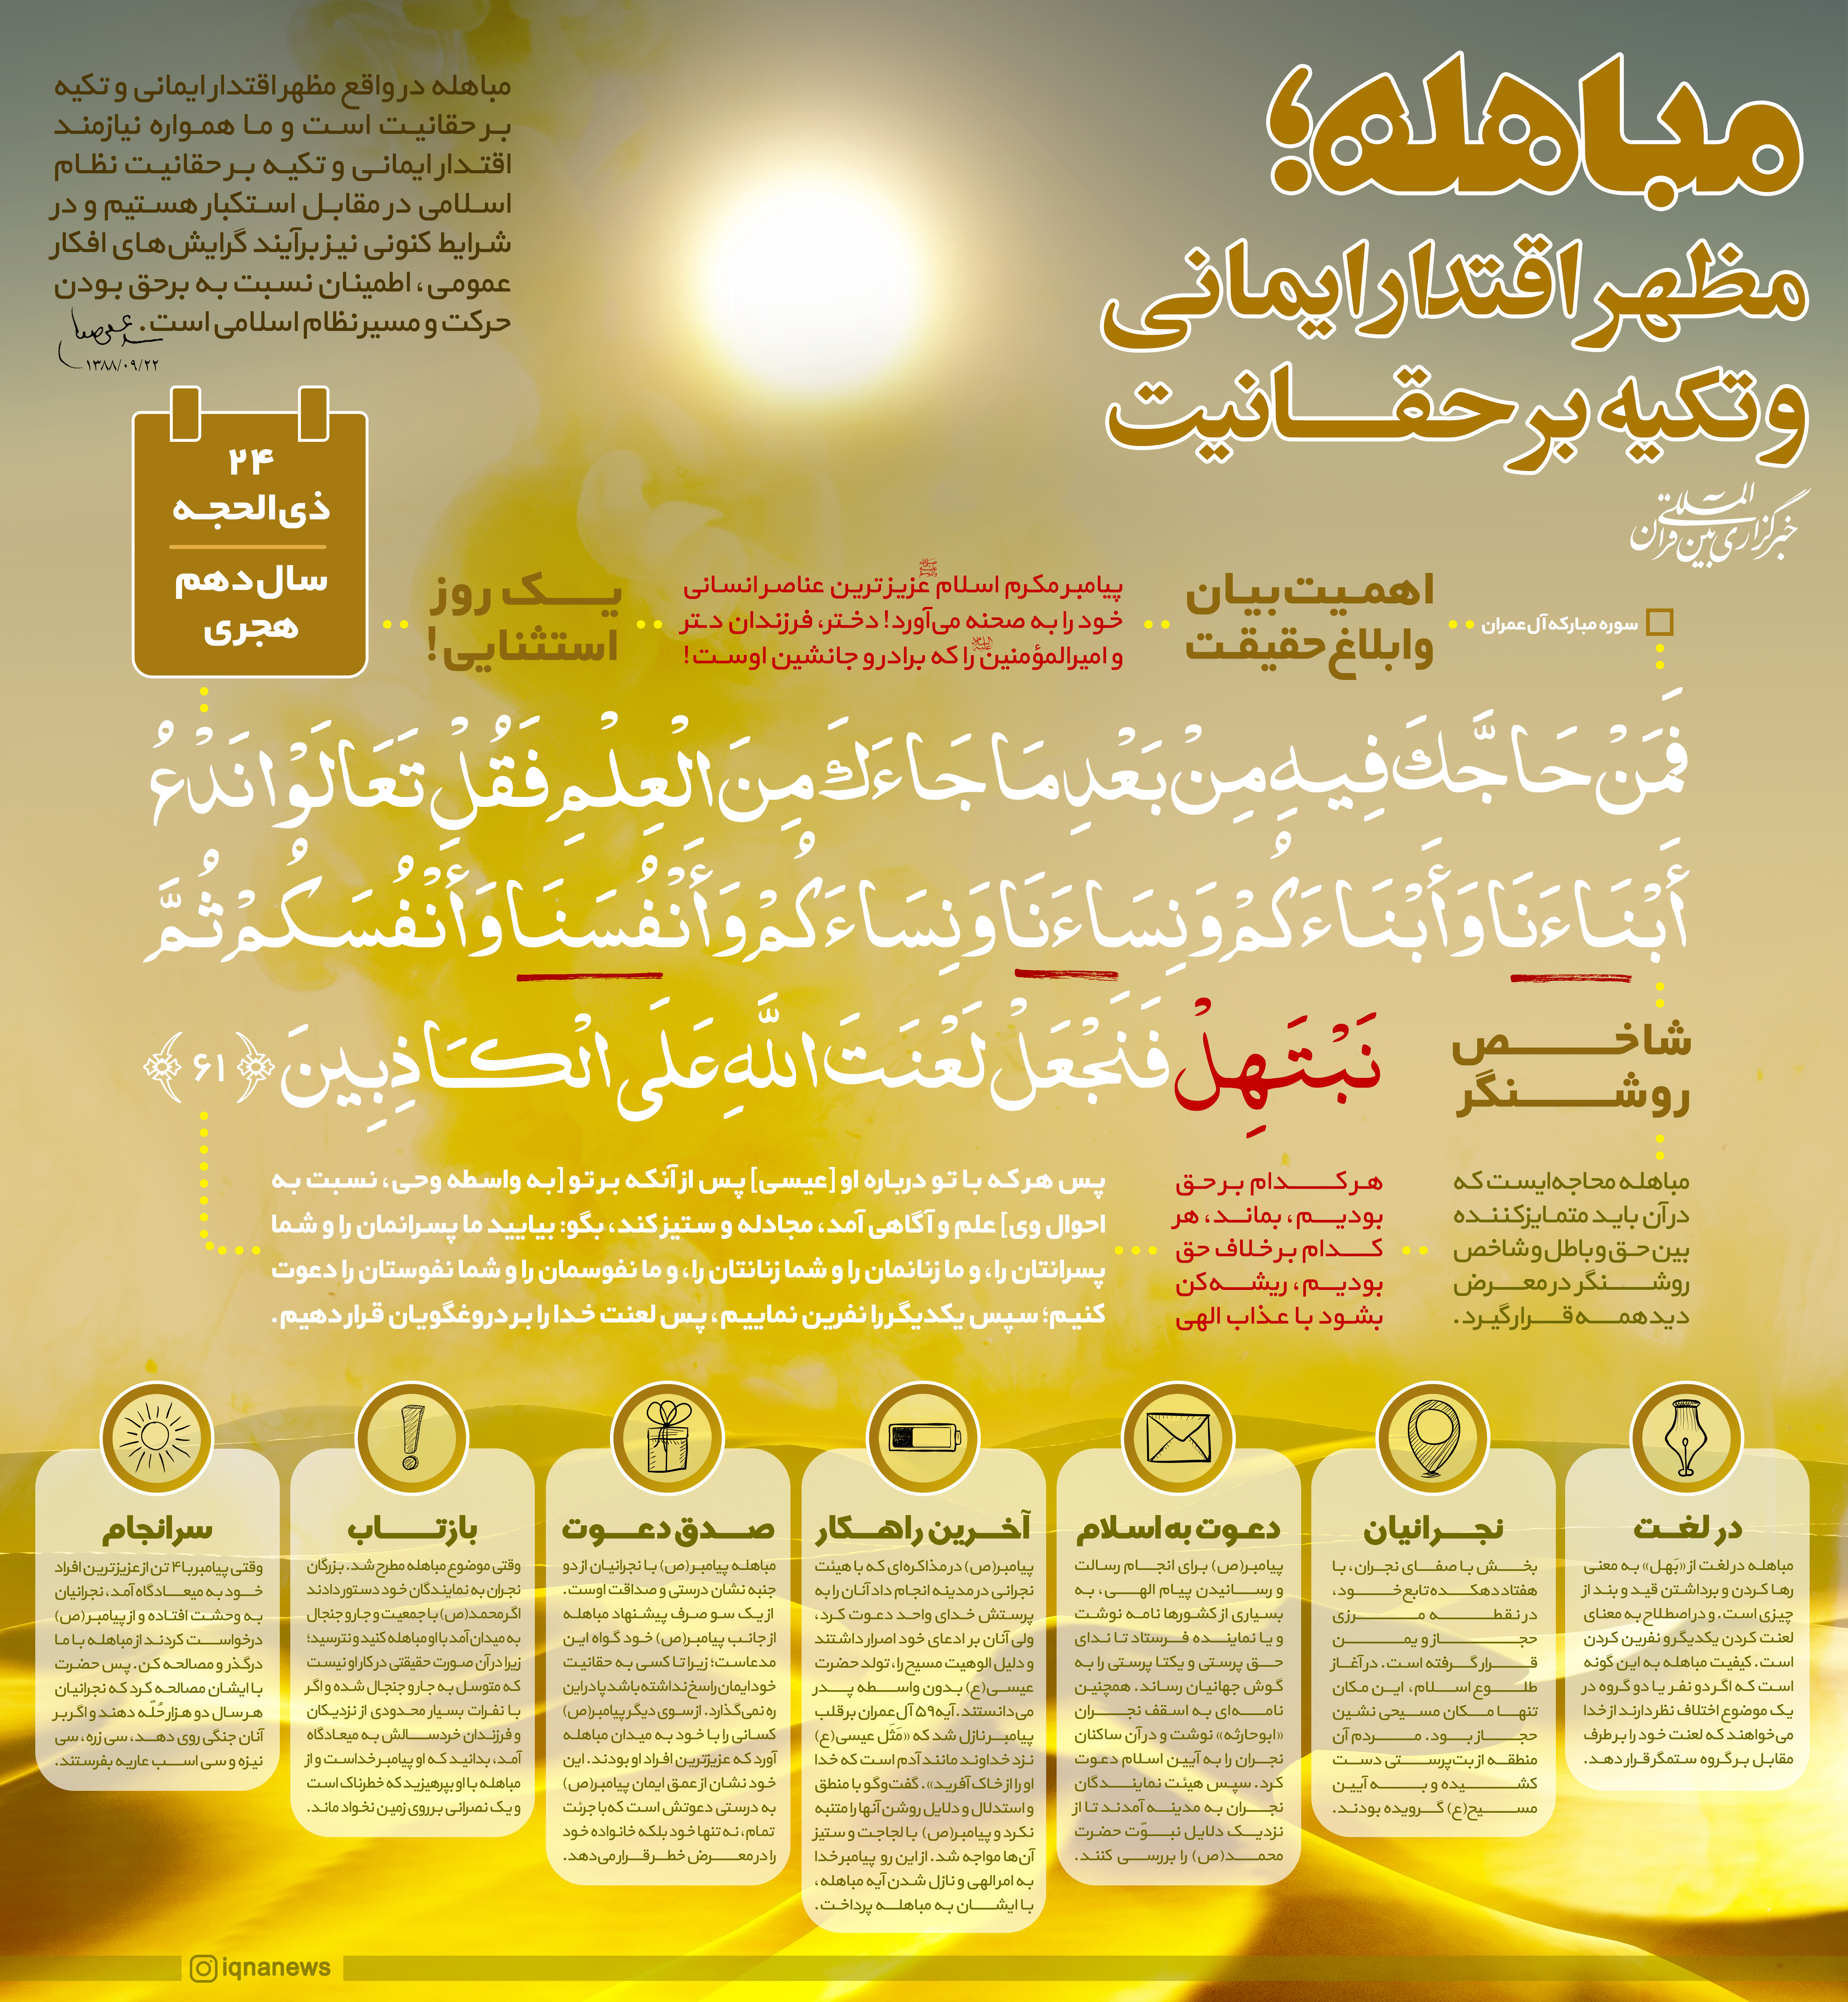 مباهله؛
مظهر اقتدار ایمانی
و تکیه بر حقانیت
خبرگزاری بین المللی قرآن
مباهله در واقع مظهر اقتدار ایمانی و تکیه
بر حقانیت است و ما همواره نیازمند
اقتدار ایمانی و تکیه بر حقانیت نظام
اسلامی در مقابل استکبار هستیم و در
شرایط کنونی نیز برآیند گرایش‌های افکار
عمومی، اطمینان نسبت به برحق بودن
حرکت و مسیر نظام اسلامی است.
۱۳۸۸/۰۹/۲۲
سوره مبارکه آل عمران
اهمیت بیان
و ابلاغ حقیقت
پیامبر مکرم اسلام ﷺ عزیزترین عناصر انسانی
خود را به صحنه می‌آورد! دختر، فرزندان دتر
و امیرالمؤمنین را که برادر و جانشین اوست!
یک روز
استثنایی!
۲۴
ذی‌الحجه
سال دهم
هجری
فَمَنْ حَاجَّكَ فِيهِ مِنْ بَعْدِ مَا جَاءَكَ مِنَ الْعِلْمِ فَقُلْ تَعَالَوْا نَدْعُ
أَبْنَاءَنَا وَأَبْنَاءَكُمْ وَنِسَاءَنَا وَنِسَاءَكُمْ وَأَنْفُسَنَا وَأَنْفُسَكُمْ ثُمَّ
نَبْتَهِلْ فَنَجْعَلْ لَعْنَتَ اللَّهِ عَلَى الْكَاذِبِينَ ﴿۶۱﴾
شاخص
روشنگر
مباهله محاجه‌ایست که
در آن باید متمایزکننده
بین حق و باطل و شاخص
روشنگر در معرض
دید همه قرار گیرد.
هر کدام بر حق
بودیم، بماند، هر
کدام بر خلاف حق
بودیم، ریشه‌کن
بشود با عذاب الهی
پس هرکه با تو درباره او [عیسی] پس از آنکه بر تو [به واسطه وحی، نسبت به
احوال وی] علم و آگاهی آمد، مجادله و ستیز کند، بگو: بیایید ما پسرانمان را و شما
پسرانتان را، و ما زنانمان را و شما زنانتان را، و ما نفوسمان را و شما نفوستان را دعوت
کنیم؛ سپس یکدیگر را نفرین نماییم، پس لعنت خدا را بر دروغگویان قرار دهیم.
در لغت
مباهله در لغت از «بَهل» به معنی
رها کردن و برداشتن قید و بند از
چیزی است. و در اصطلاح به معنای
لعنت کردن یکدیگر و نفرین کردن
است. کیفیت مباهله به این گونه
است که اگر دو نفر یا دو گروه در
یک موضوع اختلاف نظر دارند از خدا
می‌خواهند که لعنت خود را بر طرف
مقابل بر گروه ستمگر قرار دهد.
نجرانیان
بخش با صفای نجران، با
هفتاد دهکده تابع خود،
در نقطه مرزی
حجاز و یمن
قرار گرفته است. در آغاز
طلوع اسلام، این مکان
تنها مکان مسیحی نشین
حجاز بود. مردم آن
منطقه از بت‌پرستی دست
کشیده و به آیین
مسیح(ع) گرویده بودند.
دعوت به اسلام
پیامبر(ص) برای انجام رسالت
و رسانیدن پیام الهی، به
بسیاری از کشورها نامه نوشت
و یا نماینده فرستاد تا ندای
حق پرستی و یکتا پرستی را به
گوش جهانیان رساند. همچنین
نامه‌ای به اسقف نجران
«ابوحارثه» نوشت و در آن ساکنان
نجران را به آیین اسلام دعوت
کرد. سپس هیئت نمایندگان
نجران به مدینه آمدند تا از
نزدیک دلایل نبوّت حضرت
محمد(ص) را بررسی کنند.
آخرین راهکار
پیامبر(ص) در مذاکره‌ای که با هیئت
نجرانی در مدینه انجام داد آنان را به
پرستش خدای واحد دعوت کرد،
ولی آنان بر ادعای خود اصرار داشتند
و دلیل الوهیت مسیح را، تولد حضرت
عیسی(ع) بدون واسطه پدر
می‌دانستند. آیه ۵۹ آل عمران بر قلب
پیامبر نازل شد که «مَثَل عیسی(ع)
نزد خداوند مانند آدم است که خدا
او را از خاک آفرید». گفت‌وگو با منطق
و استدلال و دلایل روشن آنها را متنبه
نکرد و پیامبر(ص) با لجاجت و ستیز
آن‌ها مواجه شد. از این رو پیامبر خدا
به امر الهی و نازل شدن آیه مباهله،
با ایشان به مباهله پرداخت.
صدق دعوت
مباهله پیامبر(ص) با نجرانیان از دو
جنبه نشان درستی و صداقت اوست.
از یک سو صرف پیشنهاد مباهله
از جانب پیامبر(ص) خود گواه این
مدعاست؛ زیرا تا کسی به حقانیت
خود ایمان راسخ نداشته باشد پا در این
ره نمی‌گذارد. از سوی دیگر پیامبر(ص)
کسانی را با خود به میدان مباهله
آورد که عزیزترین افراد او بودند. این
خود نشان از عمق ایمان پیامبر(ص)
به درستی دعوتش است که با جرئت
تمام، نه تنها خود بلکه خانواده خود
را در معرض خطر قرار می‌دهد.
بازتاب
وقتی موضوع مباهله مطرح شد. بزرگان
نجران به نمایندگان خود دستور دادند
اگر محمد(ص) با جمعیت و جار و جنجال
به میدان آمد با او مباهله کنید و نترسید؛
زیرا در آن صورت حقیقتی در کار او نیست
که متوسل به جار و جنجال شده و اگر
با نفرات بسیار محدودی از نزدیکان
و فرزندان خردسالش به میعادگاه
آمد، بدانید که او پیامبر خداست و از
مباهله با او بپرهیزید که خطرناک است
و یک نصرانی بر روی زمین نخواد ماند.
سرانجام
وقتی پیامبر با ۴ تن از عزیزترین افراد
خود به میعادگاه آمد، نجرانیان
به وحشت افتاده و از پیامبر(ص)
درخواست کردند از مباهله با ما
درگذر و مصالحه کن. پس حضرت
با ایشان مصالحه کرد که نجرانیان
هر سال دو هزار حُلّه دهند و اگر بر
آنان جنگی روی دهد، سی زره، سی
نیزه و سی اسب عاریه بفرستند.
iqnanews